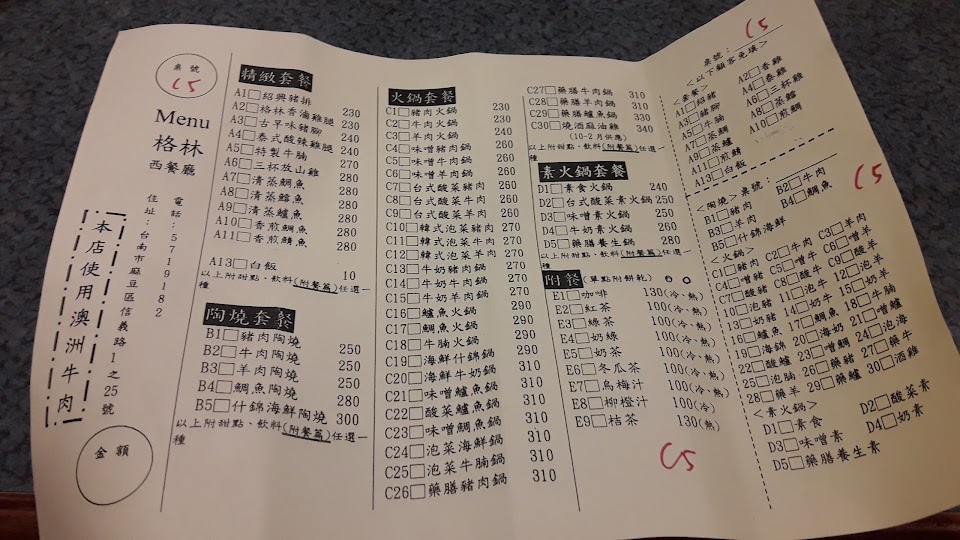 桌號
C5
Menu
格林
西餐廳
電話：5719182
住址：台南市麻豆區信義路1之25號
本店使用澳洲牛肉
金額
精緻套餐
A1□紹興豬排 230
A2□格林香滷雞腿 230
A3□古早味豬腳 240
A4□泰式酸辣雞腿 240
A5□特製牛腩 270
A6□三杯放山雞 270
A7□清蒸鯛魚 280
A8□清蒸鱈魚 280
A9□清蒸鱸魚 280
A10□香煎鯛魚 280
A11□香煎鯖魚 280
A13□白飯 10
以上附甜點、飲料(附餐篇)任選一種
陶燒套餐
B1□豬肉陶燒 250
B2□牛肉陶燒 250
B3□羊肉陶燒 250
B4□鯛魚陶燒 280
B5□什錦海鮮陶燒 300
以上附甜點、飲料(附餐篇)任選一種
火鍋套餐
C1□豬肉火鍋 230
C2□牛肉火鍋 230
C3□羊肉火鍋 240
C4□味噌豬肉鍋 260
C5□味噌牛肉鍋 260
C6□味噌羊肉鍋 260
C7□台式酸菜豬肉 260
C8□台式酸菜牛肉 260
C9□台式酸菜羊肉 260
C10□韓式泡菜豬肉 270
C11□韓式泡菜牛肉 270
C12□韓式泡菜羊肉 270
C13□牛奶豬肉鍋 270
C14□牛奶牛肉鍋 270
C15□牛奶羊肉鍋 270
C16□鱸魚火鍋 290
C17□鯛魚火鍋 290
C18□牛腩火鍋 290
C19□海鮮什錦鍋 290
C20□海鮮牛奶鍋 310
C21□味噌鱸魚鍋 310
C22□酸菜鱸魚鍋 310
C23□味噌鯛魚鍋 310
C24□泡菜海鮮鍋 310
C25□泡菜牛腩鍋 310
C26□藥膳豬肉鍋 310
C27□藥膳牛肉鍋 310
C28□藥膳羊肉鍋 310
C29□藥膳鱸魚鍋 330
C30□燒酒麻油雞 340
(10-2月供應)
以上附甜點、飲料(附餐篇)任選一種
素火鍋套餐
D1□素食火鍋 240
D2□台式酸菜素火鍋 250
D3□味噌素火鍋 250
D4□牛奶素火鍋 260
D5□藥膳養生鍋 280
以上附甜點、飲料(附餐篇)任選一種
附餐(單點附餅乾)
E1□咖啡 130(冷、熱)
E2□紅茶 100(冷、熱)
E3□綠茶 100(冷、熱)
E4□奶綠 100(冷、熱)
E5□奶茶 100(冷、熱)
E6□冬瓜茶 100(冷、熱)
E7□烏梅汁 100(冷、熱)
E8□柳橙汁 100(冷)
E9□桔茶 130(熱)
C5
桌號：C5
<以下顧客免填>
<套餐>
A1□紹豬 A2□香雞
A3□豬腳 A4□泰雞
A5□牛腩 A6□三杯雞
A7□蒸鯛 A8□蒸鱈
A9□蒸鱸 A10□煎鯛
A11□煎鯖
A13□白飯
<陶燒>桌號：C5
B1□豬肉 B2□牛肉
B3□羊肉 B4□鯛魚
B5□什錦海鮮
<火鍋>
C1□豬肉 C2□牛肉 C3□羊肉
C4□噌豬 C5□噌牛 C6□噌羊
C7□酸豬 C8□酸牛 9□酸羊
10□泡豬 11□泡牛 12□泡羊
13□奶豬 14□奶牛 15□奶羊
16□鱸魚 17□鯛魚 18□牛腩
19□海錦 20□海奶 21□噌鱸
22□酸鱸 23□噌鯛 24□泡海
25□泡腩 26□藥豬 27□藥牛
28□藥羊 29□藥鱸 30□酒雞
<素火鍋>
D1□素食 D2□酸菜素
D3□味噌素 D4□奶素
D5□藥膳養生素